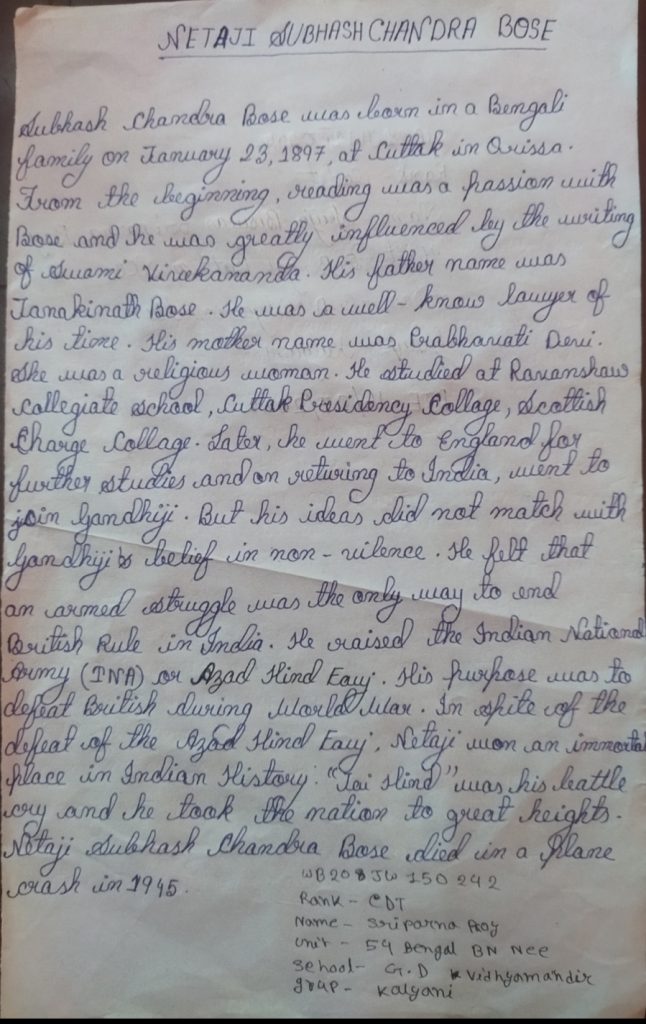 NETAJI SUBHASH CHANDRA BOSE
Subhash Chandra Bose was born in a Bengali
family on January 23, 1897, at Cuttak in Orissa.
From the beginning, reading was a passion with
Bose and he was greatly influenced by the writing
of Swami Vivekananda. His father name was
Janakinath Bose. He was a well-know lawyer of
his time. His mother name was Prabhavati Devi.
She was a religious woman. He studied at Ravanshaw
collegiate school, Cuttak Presidency Collage, Scottish
Charge Collage. Later, he went to England for
further studies and on returing to India, went to
join Gandhiji. But his ideas did not match with
Gandhiji's belief in non-vilence. He felt that
an armed struggle was the only way to end
British Rule in India. He raised the Indian National
Army (INA) or Azad Hind Fauj. His purpose was to
defeat British during World War. In spite of the
defeat of the Azad Hind Fauj, Netaji won an immortal
place in Indian History. "Jai Hind" was his battle
cry and he took the nation to great heights.
Netaji Subhash Chandra Bose died in a plane
crash in 1945.
WB20SJW150242
Rank - CDT
Name - Sriparna Roy
Unit - 54 Bengal BN Ncc
School- G.D Vidhyamandir
grup- Kalyani